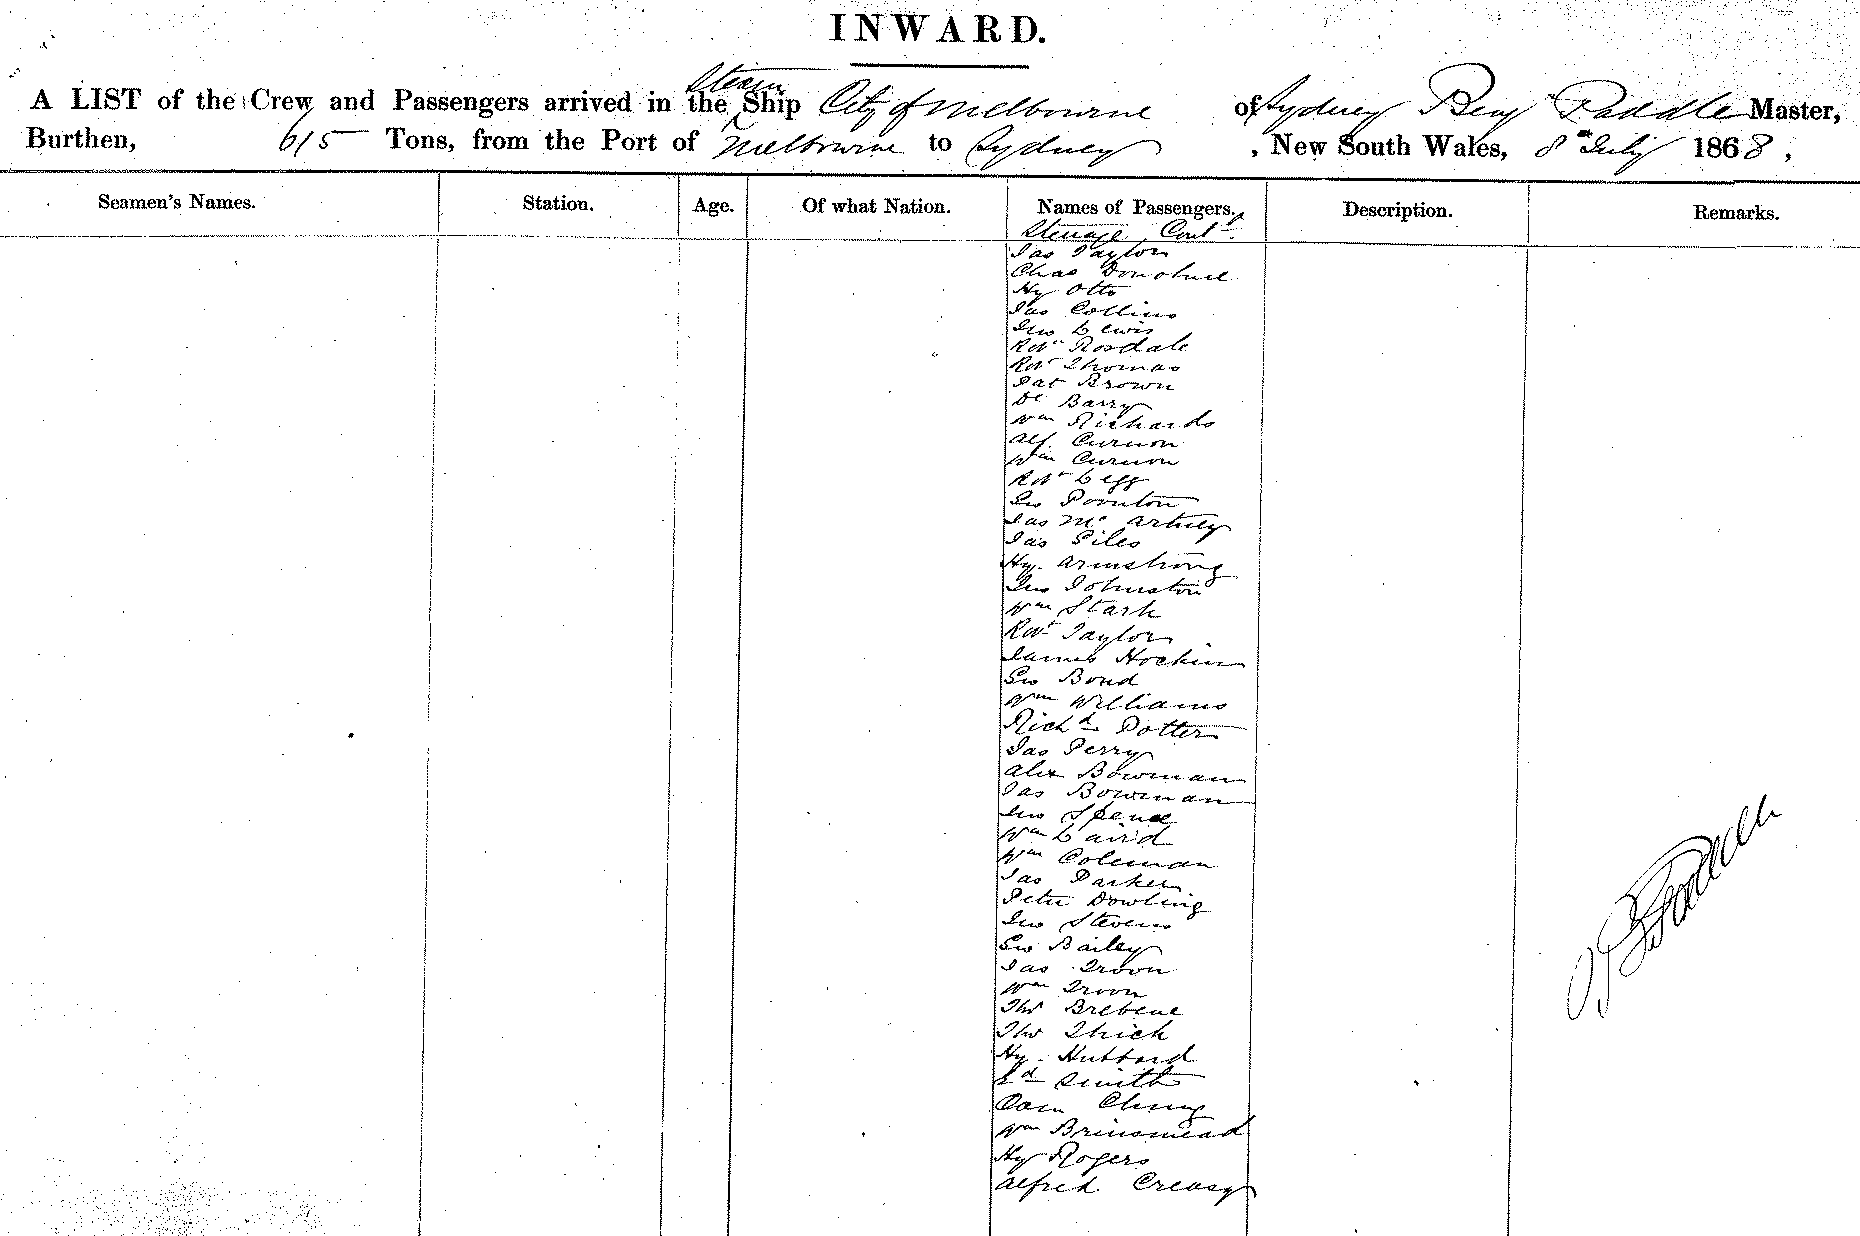 INWARD.
Steam
A LIST of the Crew and Passengers arrived in the Ship City of Melbourne of Sydney Benj Paddle Master,
Burthen, 615 Tons, from the Port of Melbourne to Sydney, New South Wales, 8th July 1868,
Seamen's Names. Station. Age. Of what Nation. Names of Passengers. Description. Remarks.
Steerage Contd.
Jas Taylor
Chas Donohue
Hy Otto
Jas Collins
Jno Lewis
Robt Rosdale
Robt Thomas
Pat Brown
Dl Barry
Wm Richards
Alf. Curnon
Wm Curnon
Robt Legg
Geo Pointon
Jas McArtney
Jas Giles
Hy. Armstrong
Jno Johnston
Wm Stark
Robt Taylor
James Hockin
Geo Bond
Wm Williams
Richd Potter
Jas Perry
Alex Bowman
Jas Bowman
Jno Spence
Wm Laird
Wm Coleman
Jas Parker
Peter Dowling
Jno Stevens
Geo Bailey
Jas Troon
Wm Troon
Tho Brebene
Tho Thick
Hy. Hubbard
Ed Smith
Chung
Wm Brinsmead
Hy Rogers
Alfred Creasy